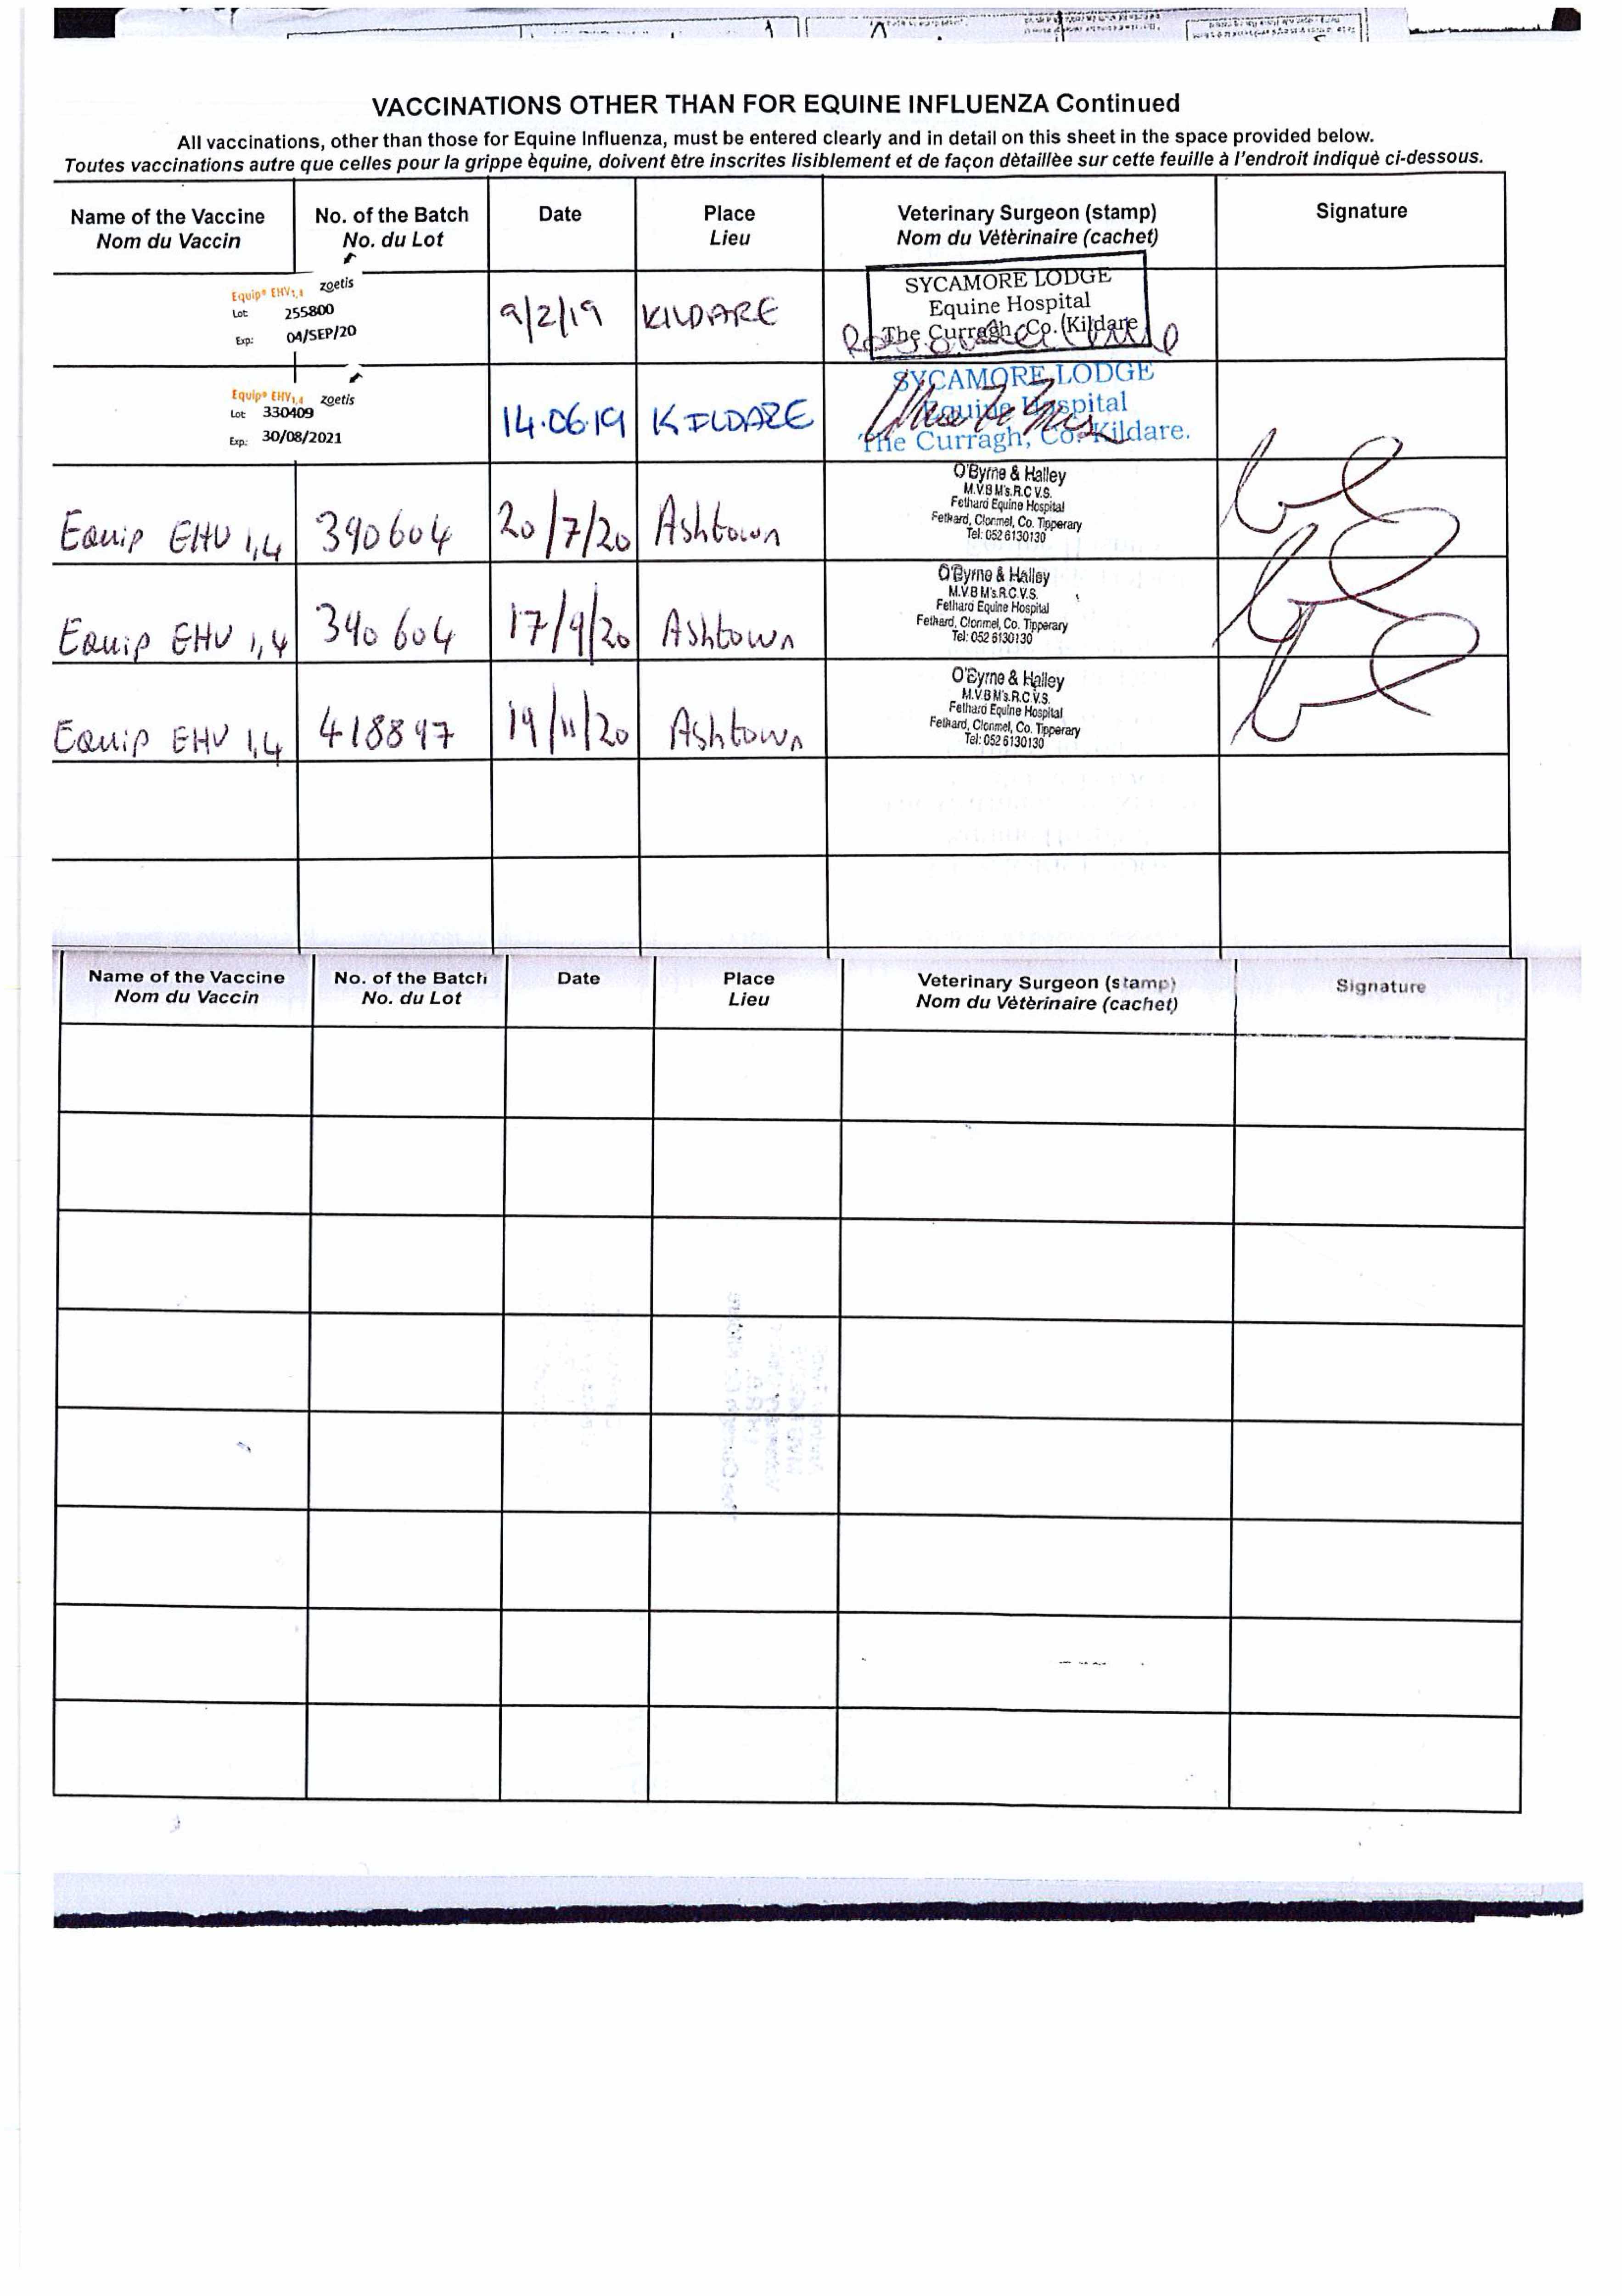 VACCINATIONS OTHER THAN FOR EQUINE INFLUENZA Continued
All vaccinations, other than those for Equine Influenza, must be entered clearly and in detail on this sheet in the space provided below.
Toutes vaccinations autre que celles pour la grippe èquine, doivent ètre inscrites lisiblement et de façon dètaillèe sur cette feuille à l'endroit indiquè ci-dessous.
Name of the Vaccine No. of the Batch Date Place Veterinary Surgeon (stamp) Signature
Nom du Vaccin No. du Lot Lieu Nom du Vètèrinaire (cachet)
Equip® EHV1,4 zoetis
Lot: 255800
Exp: 04/SEP/20
9/2/19 KILDARE
SYCAMORE LODGE
Equine Hospital
The Curragh, Co. Kildare
Equip® EHV1,4 zoetis
Lot: 330409
Exp: 30/08/2021
14.06.19 KILDARE
SYCAMORE LODGE
Equine Hospital
The Curragh, Co. Kildare.
Equip EHV 1,4 390604 20/7/20 Ashtown
O'Byrne & Halley
M.V.B M's.R.C.V.S.
Fethard Equine Hospital
Fethard, Clonmel, Co. Tipperary
Tel: 052 6130130
Equip EHV 1,4 390604 17/9/20 Ashtown
O'Byrne & Halley
M.V.B M's.R.C.V.S.
Fethard Equine Hospital
Fethard, Clonmel, Co. Tipperary
Tel: 052 6130130
Equip EHV 1,4 418897 19/11/20 Ashtown
O'Byrne & Halley
M.V.B M's.R.C.V.S.
Fethard Equine Hospital
Fethard, Clonmel, Co. Tipperary
Tel: 052 6130130
Name of the Vaccine No. of the Batch Date Place Veterinary Surgeon (stamp) Signature
Nom du Vaccin No. du Lot Lieu Nom du Vètèrinaire (cachet)